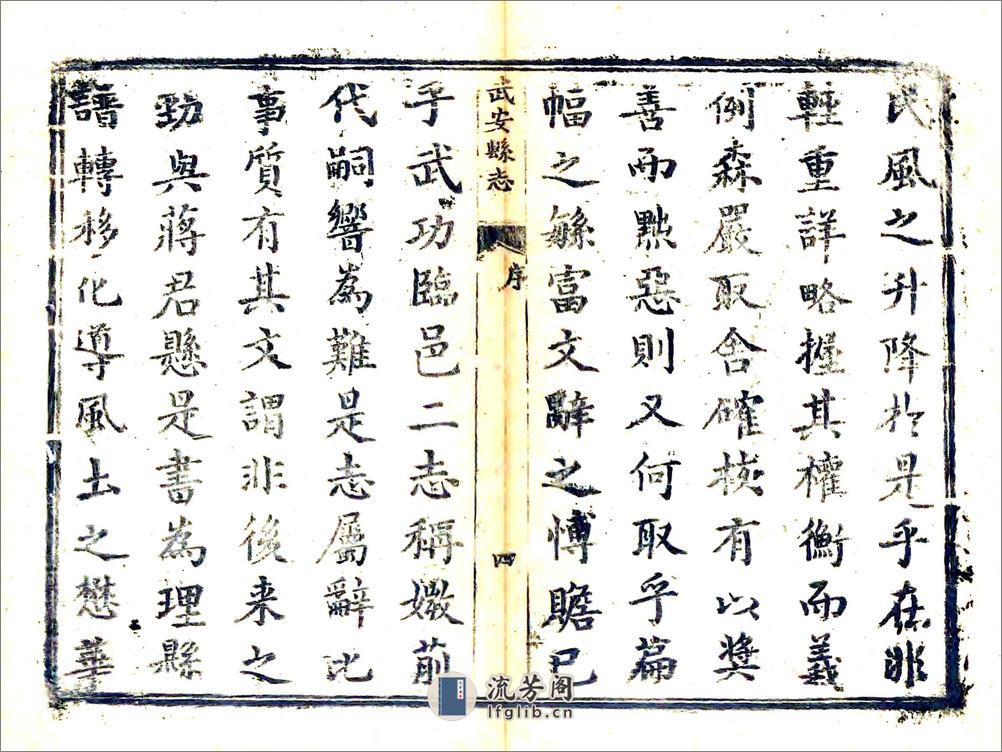 民風之升降於是乎在非
輕重詳略握其權衡而義
例森嚴取舍確核有以獎
善而黜惡則又何取乎篇
幅之繇富文辭之博贍已
武安縣志
序
四
乎武功臨邑二志稱媺前
代嗣響為難是志屬辭比
事質有其文謂非後来之
勁與蔣君懸是書為理縣
譜轉移化導風土之懋華
流芳阁
lfglib.cn